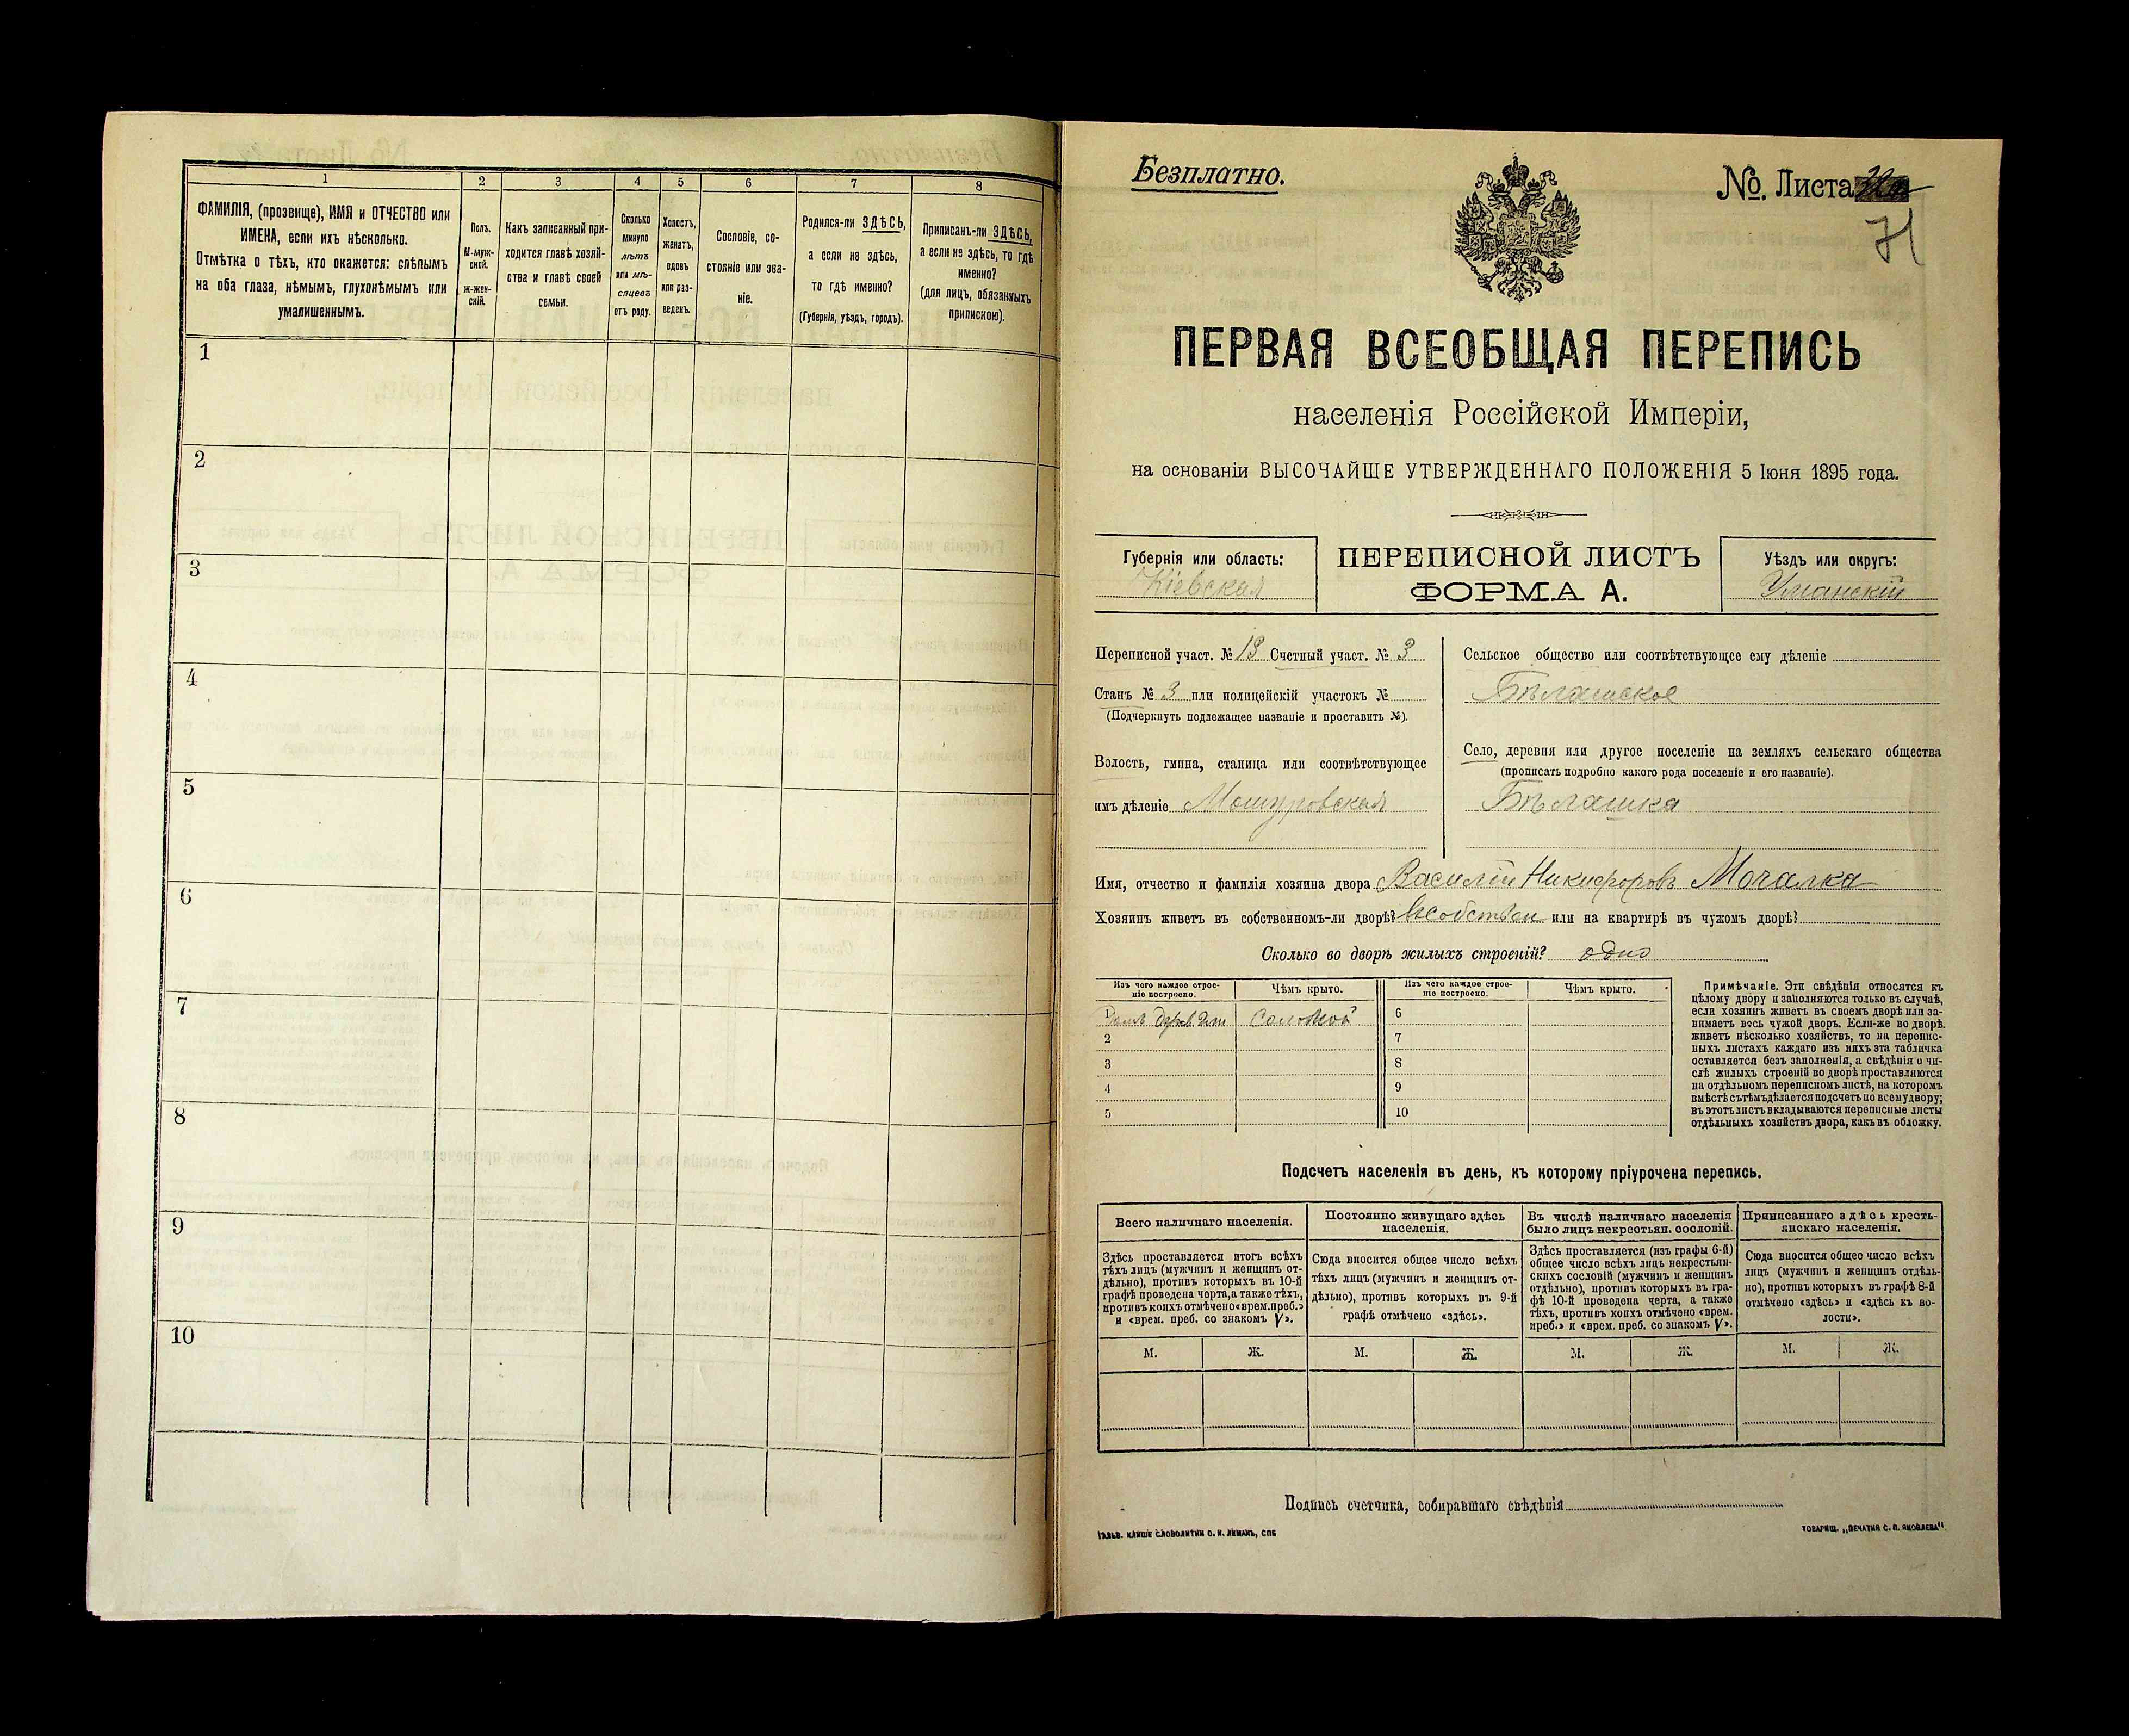 1
2
3
4
5
6
7
8
ФАМИЛІЯ, (прозвище), ИМЯ и ОТЧЕСТВО или
ИМЕНА, если ихъ нѣсколько.
Отмѣтка о тѣхъ, кто окажется: слѣпымъ
на оба глаза, нѣмымъ, глухонѣмымъ или
умалишеннымъ.
Полъ.
М-муж-
ской.
ж-жен-
скій.
Какъ записанный при-
ходится главѣ хозяй-
ства и главѣ своей
семьи.
Сколько
минуло
лѣтъ
или мѣ-
сяцевъ
отъ роду.
Холостъ,
женатъ,
вдовъ
или раз-
веденъ.
Сословіе, со-
стояніе или зва-
ніе.
Родился-ли ЗДѢСЬ,
а если не здѣсь,
то гдѣ именно?
(Губернія, уѣздъ, городъ).
Приписанъ-ли ЗДѢСЬ,
а если не здѣсь, то гдѣ
именно?
(для лицъ, обязанныхъ
припискою).
1
2
3
4
5
6
7
8
9
10
Безплатно.
№. Листа
71
ПЕРВАЯ ВСЕОБЩАЯ ПЕРЕПИСЬ
населенія Россійской Имперіи,
на основаніи ВЫСОЧАЙШЕ УТВЕРЖДЕННАГО ПОЛОЖЕНІЯ 5 Іюня 1895 года.
Губернія или область:
Кіевская
ПЕРЕПИСНОЙ ЛИСТЪ
ФОРМА А.
Уѣздъ или округъ:
Уманскій
Переписной участ. № 13 Счетный участ. № 3
Станъ № 3 или полицейскій участокъ №
(Подчеркнуть подлежащее названіе и проставить №).
Волость, гмина, станица или соотвѣтствующее
имъ дѣленіе Мошуровская
Сельское общество или соотвѣтствующее ему дѣленіе
Бѣлашское
Село, деревня или другое поселеніе на земляхъ сельскаго общества
(прописать подробно какого рода поселеніе и его названіе).
Бѣлашка
Имя, отчество и фамилія хозяина двора Василій Никифоровъ Мочалка
Хозяинъ живетъ въ собственномъ-ли дворѣ? Въ собствен или на квартирѣ въ чужомъ дворѣ?
Сколько во дворѣ жилыхъ строеній? одно
Изъ чего каждое строе-
ніе построено.
Чѣмъ крыто.
Изъ чего каждое строе-
ніе построено.
Чѣмъ крыто.
1 соломой
2
3
4
5
6
7
8
9
10
Примѣчаніе. Эти свѣдѣнія относятся къ
цѣлому двору и заполняются только въ случаѣ,
если хозяинъ живетъ въ своемъ дворѣ или за-
нимаетъ весь чужой дворъ. Если-же во дворѣ
живетъ нѣсколько хозяйствъ, то на перепис-
ныхъ листахъ каждаго изъ нихъ эта табличка
оставляется безъ заполненія, а свѣдѣнія о чи-
слѣ жилыхъ строеній во дворѣ проставляются
на отдѣльномъ переписномъ листѣ, на которомъ
вмѣстѣ съ тѣмъ дѣлается подсчетъ по всему двору;
въ этотъ листъ вкладываются переписные листы
отдѣльныхъ хозяйствъ двора, какъ въ обложку.
Подсчетъ населенія въ день, къ которому пріурочена перепись.
Всего наличнаго населенія.
Здѣсь проставляется итогъ всѣхъ
тѣхъ лицъ (мужчинъ и женщинъ от-
дѣльно), противъ которыхъ въ 10-й
графѣ проведена черта, а также тѣхъ,
противъ коихъ отмѣчено «врем. преб.»
и «врем. преб. со знакомъ V».
Постоянно живущаго здѣсь
населенія.
Сюда вносится общее число всѣхъ
тѣхъ лицъ (мужчинъ и женщинъ от-
дѣльно), противъ которыхъ въ 9-й
графѣ отмѣчено «здѣсь».
Въ числѣ наличнаго населенія
было лицъ некрестьян. сословій.
Здѣсь проставляется (изъ графы 6-й)
общее число всѣхъ лицъ некрестьян-
скихъ сословій (мужчинъ и женщинъ
отдѣльно), противъ которыхъ въ гра-
фѣ 10-й проведена черта, а также
тѣхъ, противъ коихъ отмѣчено «врем.
преб.» и «врем. преб. со знакомъ V».
Приписаннаго здѣсь кресть-
янскаго населенія.
Сюда вносится общее число всѣхъ
лицъ (мужчинъ и женщинъ отдѣль-
но), противъ которыхъ въ графѣ 8-й
отмѣчено «здѣсь» и «здѣсь къ во-
лости».
М. Ж. М. Ж. М. Ж. М. Ж.
Подпись счетчика, собиравшаго свѣдѣнія
ГАЛЬВ. КЛИШЕ СЛОВОЛИТНИ О. И. ЛЕМАНЪ, СПБ
ТОВАРИЩ. „ПЕЧАТНЯ С. П. ЯКОВЛЕВА“